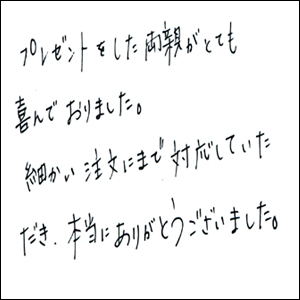 プレゼントをした両親がとても
喜んでおりました。
細かい注文にまで対応していた
だき、本当にありがとうございました。